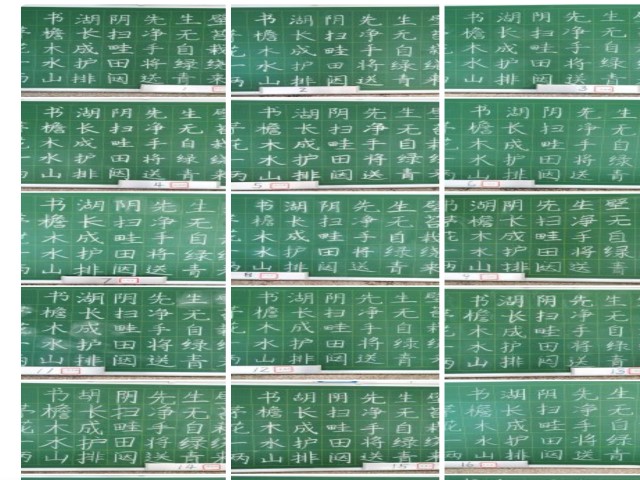 书湖阴先生
檐长扫净无
木成畦手自
水护田将绿
山排闼送青
1
书湖阴先生
檐长扫净无
木成畦手自
水护田将绿
山排闼送青
2
书湖阴先生
檐长扫净无
木成畦手自
水护田将绿
山排闼送青
3
书湖阴先生
檐长扫净无
木成畦手自
水护田将绿
山排闼送青
4
书湖阴先生
檐长扫净无
木成畦手自
水护田将绿
山排闼送青
5
书湖阴先生
檐长扫净无
木成畦手自
水护田将绿
山排闼送青
6
书湖阴先生
檐长扫净无
木成畦手自
水护田将绿
山排闼送青
7
书湖阴先生
檐长扫净无
木成畦手自
水护田将绿
山排闼送青
8
书湖阴先生壁
檐长扫净无
花木成畦手自
水护田将绿
山排闼送青
9
书湖阴先生
檐长扫净无
花木成畦手自
水护田将绿
山排闼送青
11
书湖阴先生
檐长扫净无
花木成畦手自
水护田将绿
山排闼送青
12
书湖阴先生
檐长扫净无
木成畦手自
水护田将绿
山排闼送青
13
书湖阴先生
檐长扫净无
花木成畦手自
水护田将绿
山排闼送青
14
书胡阴先生
檐长扫净无
花木成畦手自
水护田将绿
山排闼送青
15
书湖阴先生
檐长扫净无
木成畦手自
水护田将绿
山排闼送青
16